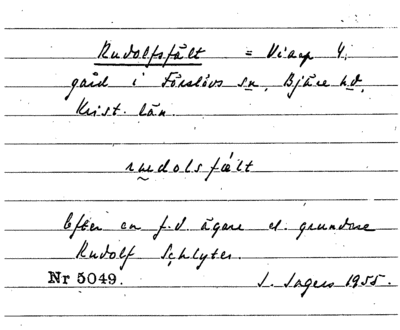 Rudolfsfält = Viarp 4.
gård i Förslövs sn, Bjäre hd,
Krist. län.
rudolsfält
Efter en f.d. ägare el. grundare
Rudolf Schlyter.
Nr 5049. S. Ingers 1955.